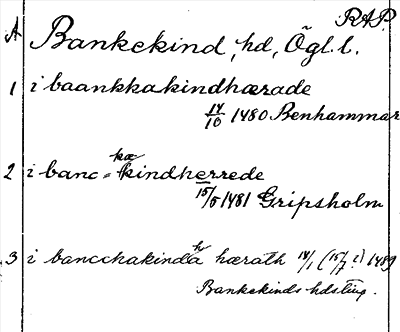 RAP.
A Bankekind, hd, Ögl. l.
1 i baankkakindhærade
14/10 1480 Benhammar
2 i banc=kækindherrede
15/5 1481 Gripsholm
3 i bancchakindahærath 14/1 (15/7?) 1489
Bankekinds hdsting.